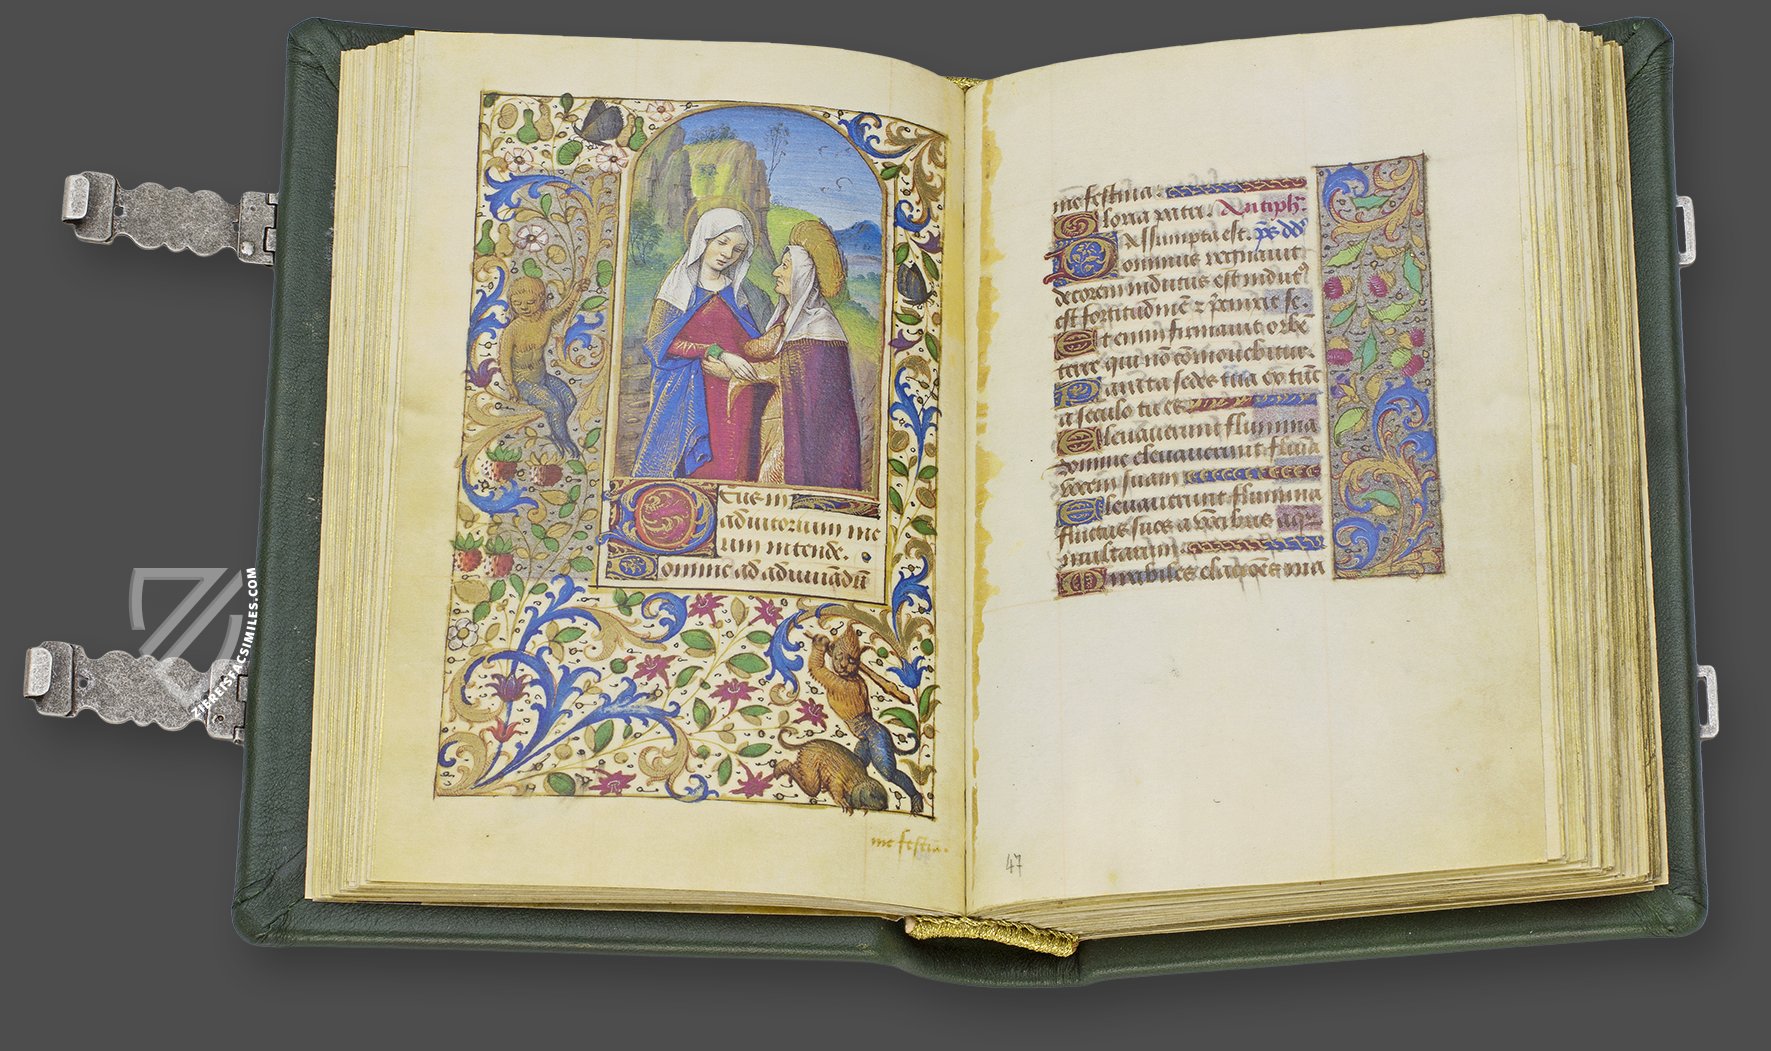 Deus in
adiutorium me
um intende.
Domine ad adiuuādū
me festina.
me festina.
Gloria patri. Antiph̄.
Assumpta est. p̄s dd̄
Dominus regnauit
decorem indutus est indut9
est fortitudinē z p̄cinxit se.
Etenim firmauit orbē
terre qui nō cōmouebitur.
Parata sedes tua ex tūc
a seculo tu es
Eleuauerunt flumina
domine eleuauerunt flumīa
vocem suam
Eleuauerunt flumina
fluctus suos a vocibus aq̄ꝝ
multarum.
Mirabiles elatiōes ma
47
ZIEREISFACSIMILES.COM